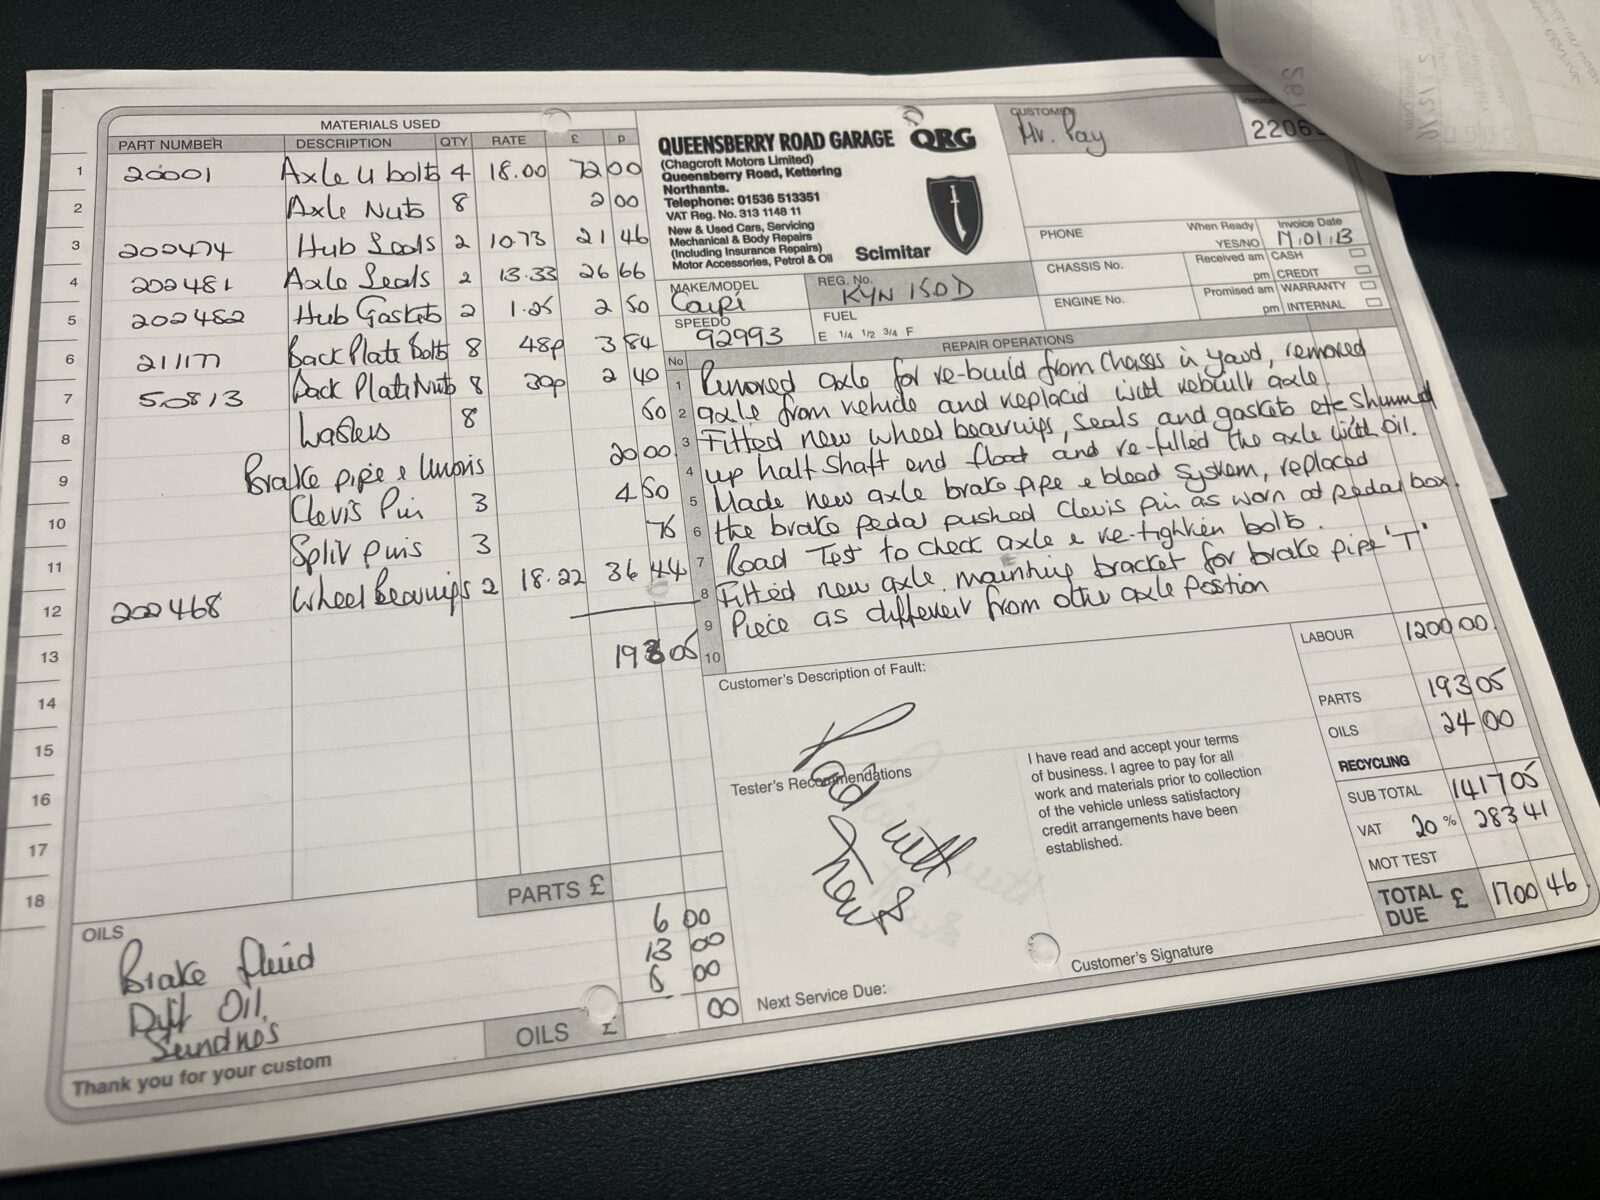 MATERIALS USED
PART NUMBER DESCRIPTION QTY RATE £ p
1 20001 Axle U bolts 4 18.00 72 00
2 Axle Nuts 8 2 00
3 202474 Hub Seals 2 10.73 21 46
4 202481 Axle Seals 2 13.33 26 66
5 202482 Hub Gaskets 2 1.25 2 50
6 211177 Back Plate Bolts 8 48p 3 84
7 50813 Back Plate Nuts 8 30p 2 40
8 Washers 8 60
9 Brake pipe & Unions 20 00
10 Clevis Pin 3 4 50
11 Split pins 3 75
12 202468 Wheel Bearings 2 18.22 36 44
13 193 05
14
15
16
17
18
PARTS £
OILS
Brake fluid 6 00
Diff Oil. 13 00
Sundries 00
OILS £ 00
Thank you for your custom
QUEENSBERRY ROAD GARAGE QRG
(Chagcroft Motors Limited)
Queensberry Road, Kettering
Northants.
Telephone: 01536 513351
VAT Reg. No. 313 1148 11
New & Used Cars, Servicing
Mechanical & Body Repairs
(Including Insurance Repairs)
Motor Accessories, Petrol & Oil
Scimitar
CUSTOMER
Mr. Pay
2206
PHONE
When Ready
YES/NO
Invoice Date
17.01.13
CHASSIS No.
Received am
pm
CASH
CREDIT
ENGINE No.
Promised am
pm
WARRANTY
INTERNAL
MAKE/MODEL
REG. No.
KYN 150D
SPEEDO
92993
FUEL
E 1/4 1/2 3/4 F
No REPAIR OPERATIONS
1 Removed axle for re-build from chassis in yard, removed
2 axle from vehicle and replaced with rebuilt axle.
3 Fitted new wheel bearings, seals and gaskets etc shimmed
4 up half shaft end float and re-filled the axle with oil.
5 Made new axle brake pipe & bleed system, replaced
6 the brake pedal pushrod Clevis pin as worn at pedal box.
7 Road Test to check axle & re-tighten bolts.
8 Fitted new axle mounting bracket for brake pipe 'T'
9 Piece as different from other axle position
10
Customer's Description of Fault:
Tester's Recommendations
Paid with thanks
I have read and accept your terms
of business. I agree to pay for all
work and materials prior to collection
of the vehicle unless satisfactory
credit arrangements have been
established.
Next Service Due:
Customer's Signature
LABOUR 1200 00.
PARTS 193 05
OILS 24 00
RECYCLING
SUB TOTAL 1417 05
VAT 20 % 283 41
MOT TEST
TOTAL DUE £ 1700 46.